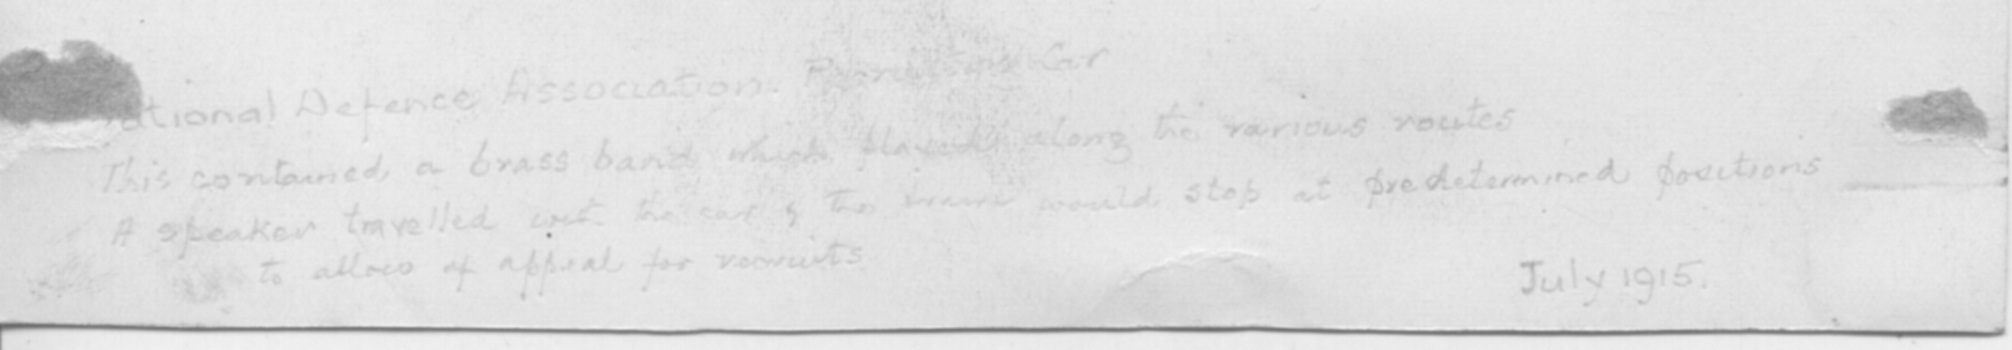 ational Defence Association. Recruiting Car
This contained a brass band which played along the various routes
A speaker travelled with the car & the tram would stop at predetermined positions
to allow of appeal for recruits
July 1915.